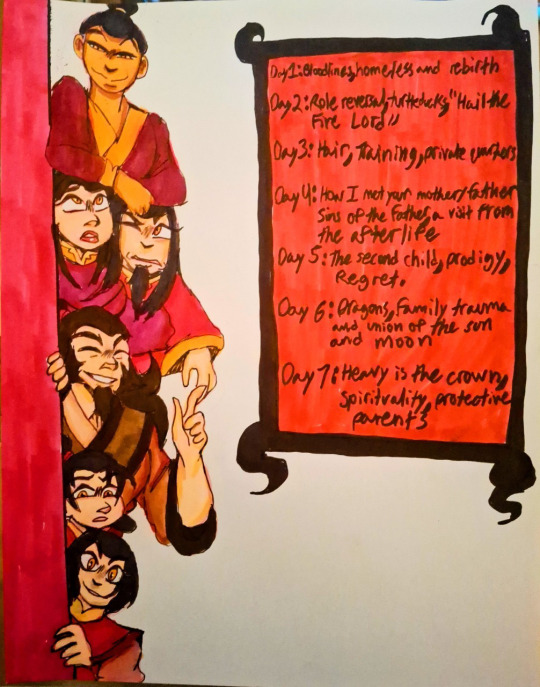 Day 1: Bloodlines, homeless and rebirth
Day 2: Role reversal, turtleducks, "Hail the
Fire Lord"
Day 3: Hair, Training, private quarters
Day 4: How I met your mother/father
Sins of the father, a visit from
the afterlife
Day 5: The second child, prodigy,
Regret.
Day 6: Dragons, Family trauma
and union of the sun
and moon
Day 7: Heavy is the crown,
spirituality, protective
parents